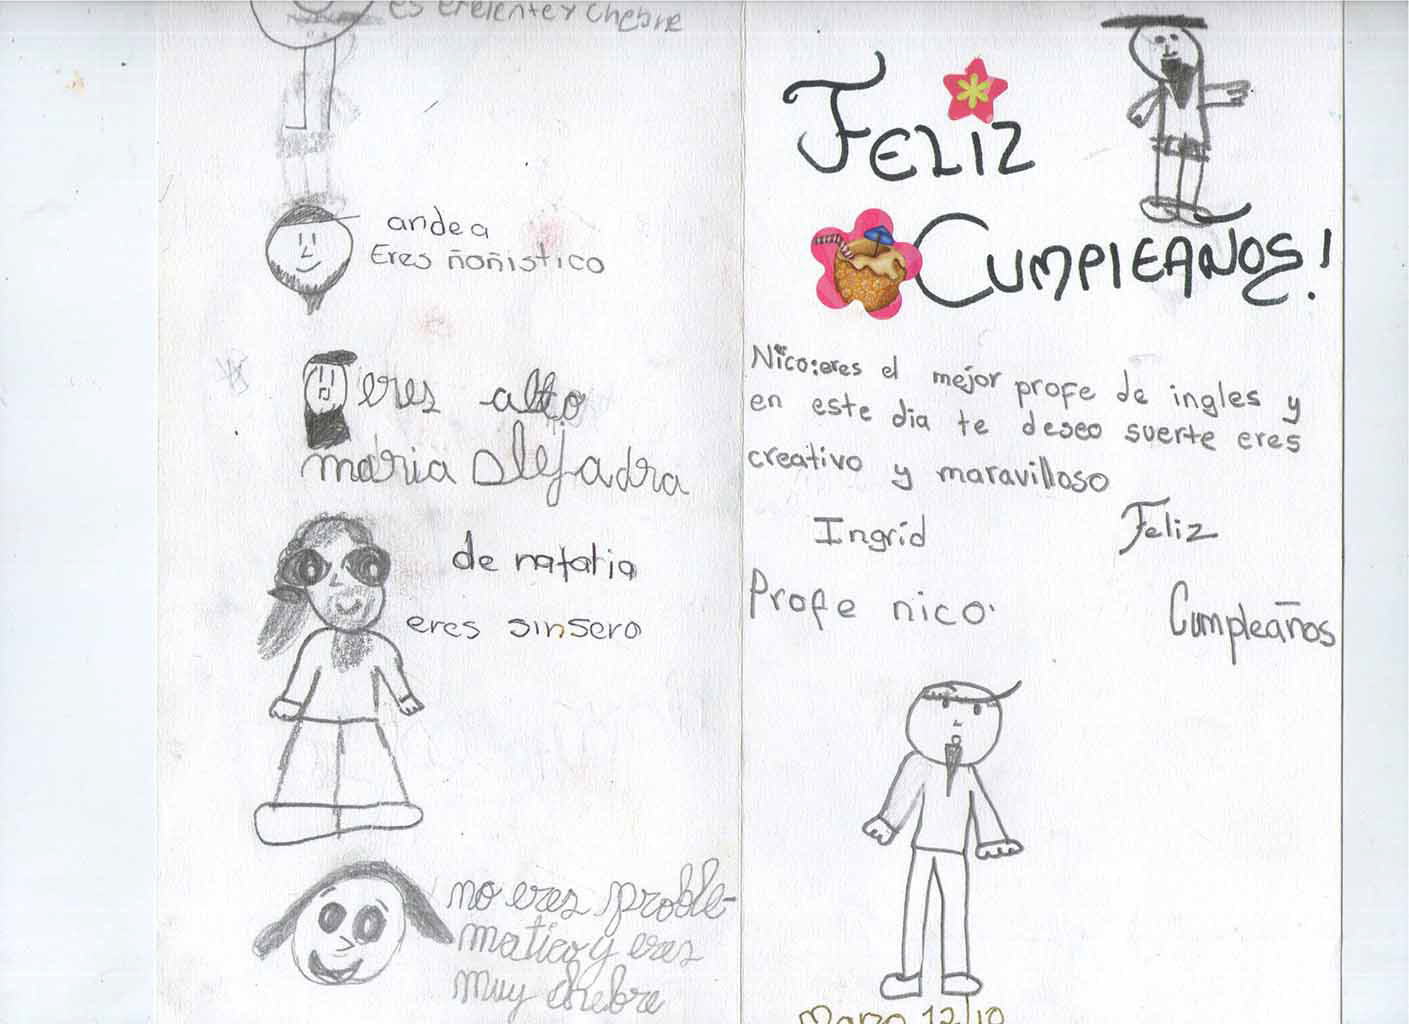 es exelente y chebre
andea
Eres ñoñistico
eres alto
maria Alejadra
de natalia
eres sinsero
no eres proble-
matico y eres
muy chebre
FELIZ
CUMPLEAÑOS!
Nico: eres el mejor profe de ingles y
en este dia te deseo suerte eres
creativo y maravilloso
Ingrid
Feliz
Profe nico.
Cumpleaños
Marzo 12/10